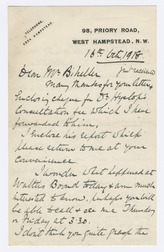 98, PRIORY ROAD,
WEST HAMPSTEAD, N.W.
TELEPHONE,
18th Oct, 1918.
Dear Mr Bikeller
Many thanks for your letter,
Enclosing cheque for Dr Hyslop's
Consultation fee which I have
forwarded Him,
I enclose his report which
please return to me at your
convenience.
I wonder what happened at
Walters Board today & am much
interested to know, perhaps you will
be able to call & see me Thursday
or Friday at 3.30.
I don't think you quite grasp the